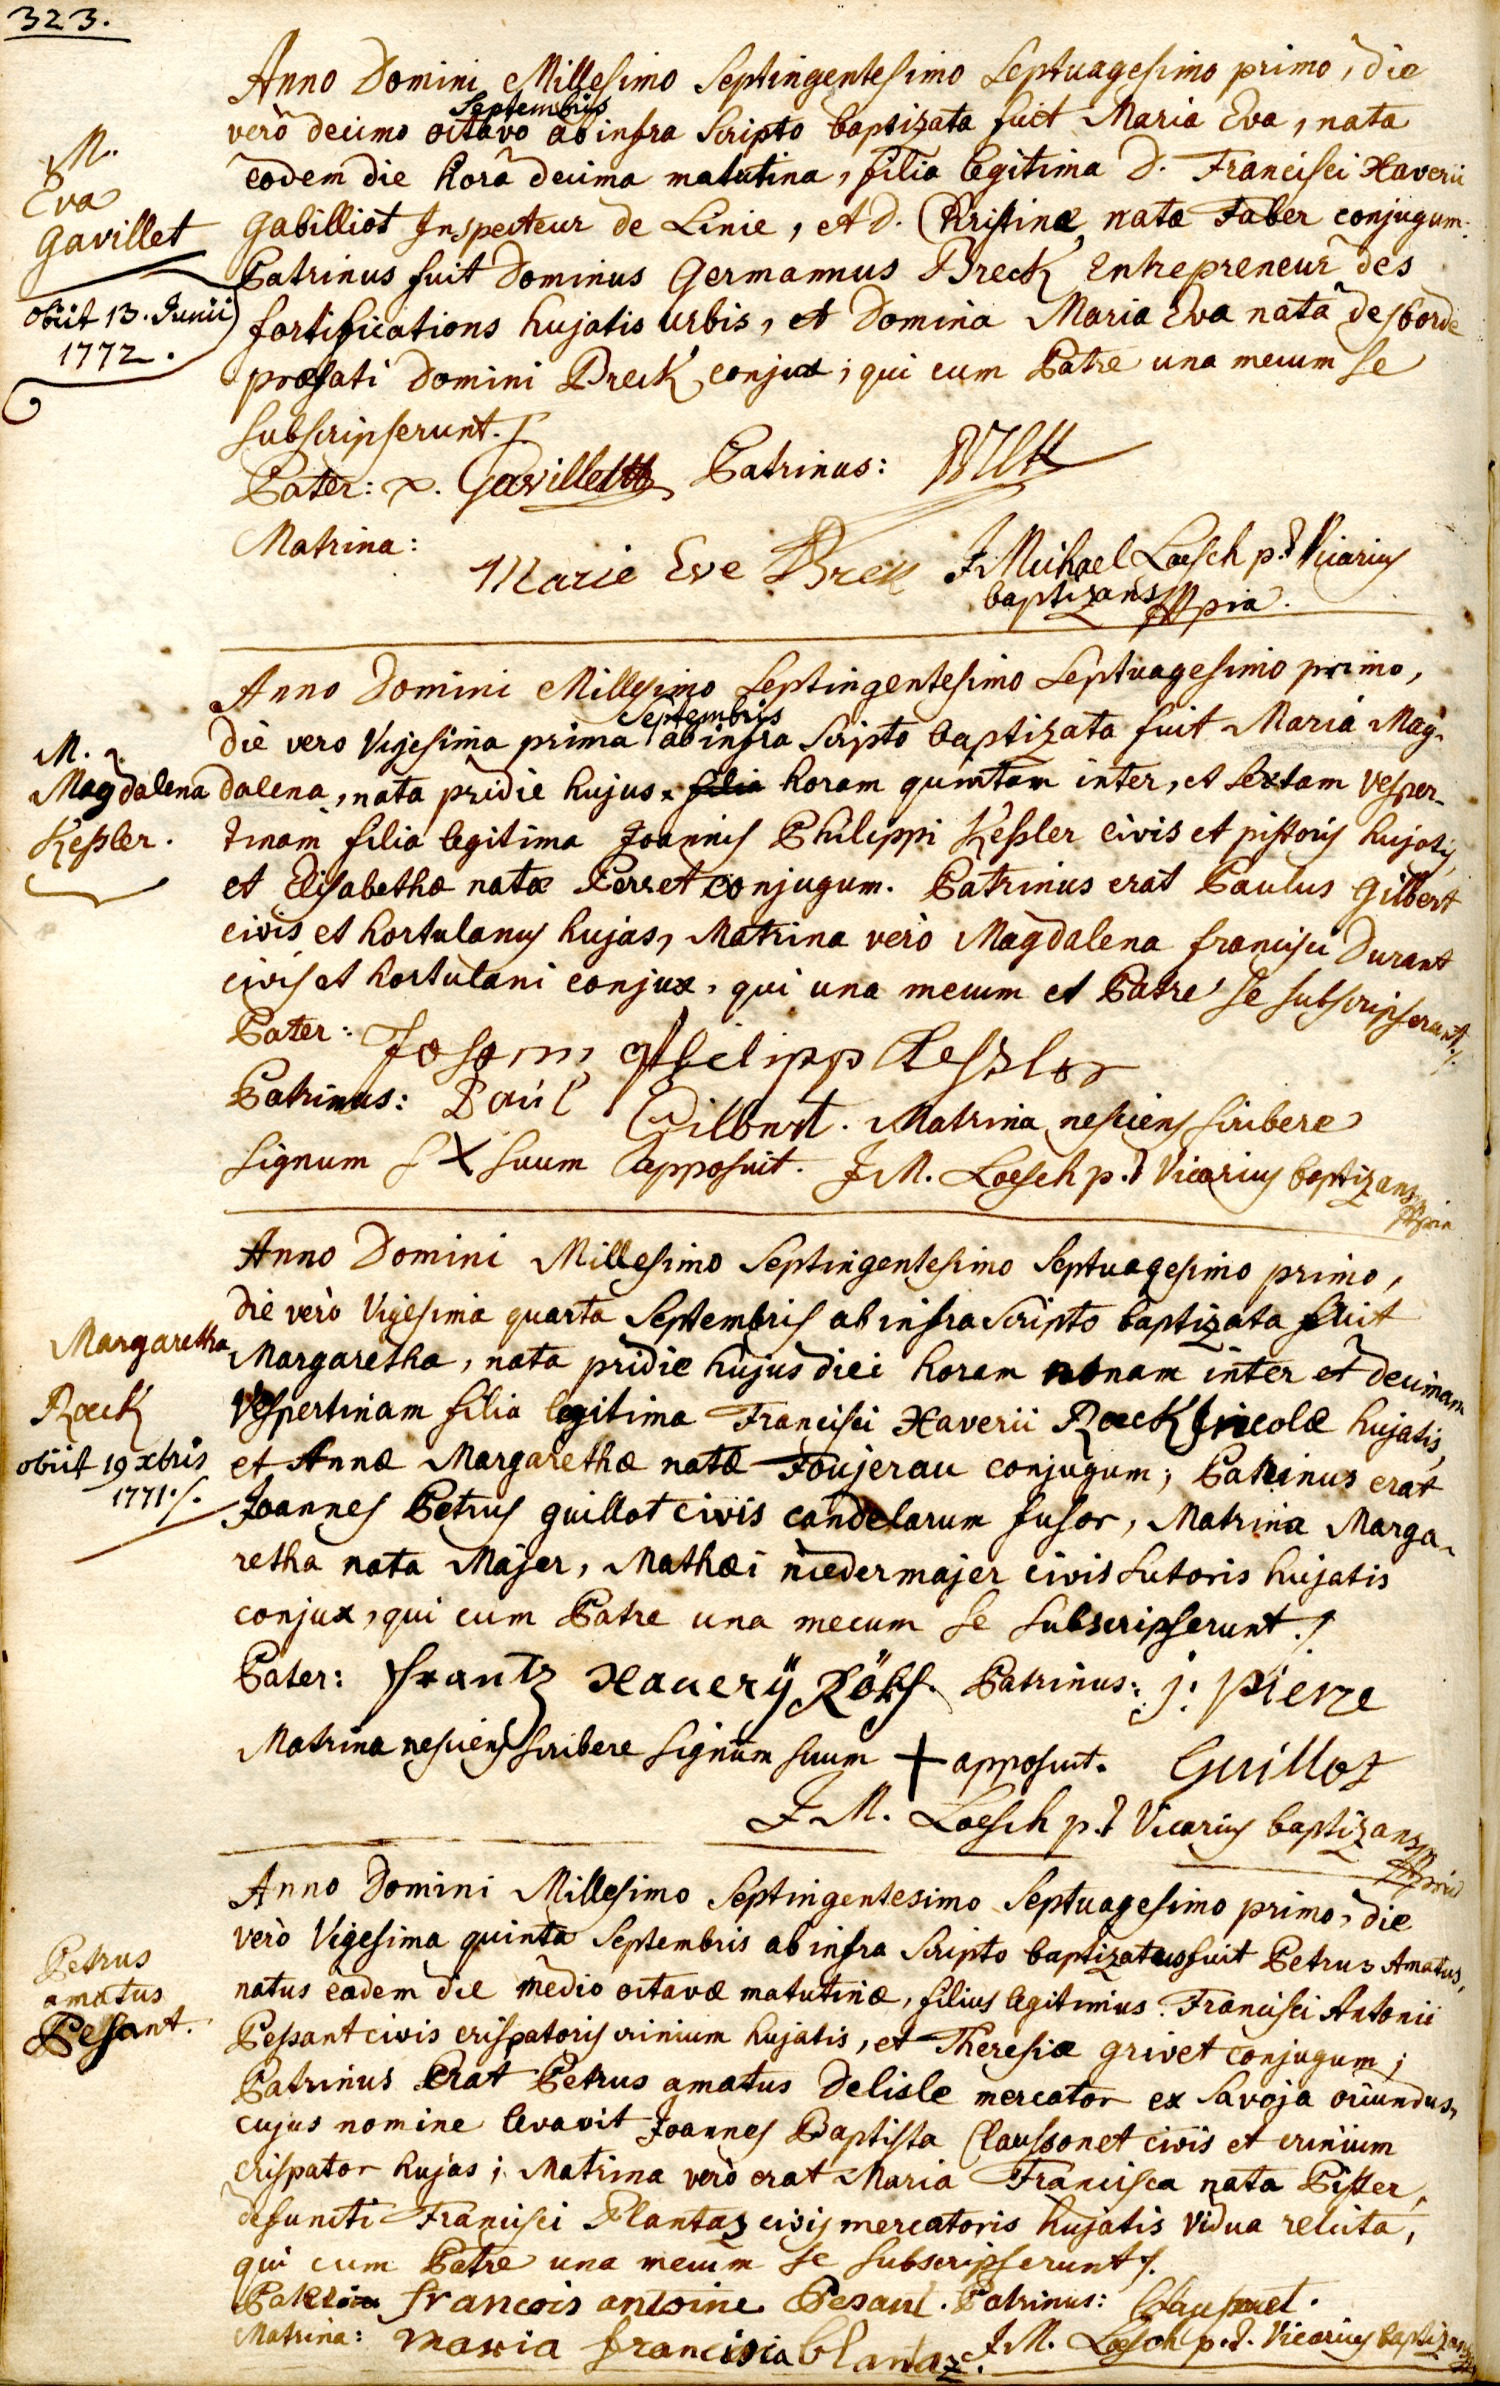 323.
Anno Domini Millesimo Septingentesimo Septuagesimo primo, die
Septembris
verò decimo octavo ab infra scripto baptizata fuit Maria Eva, nata
eodem die horâ decima matutina, filia legitima D. Francisci Xaverii
Gabilliot Inspecteur de Linie, et D. Christinæ natæ Faber conjugum.
Patrinus fuit Dominus Germannus Breck Entrepreneur des
fortifications hujatis urbis, et Domina Maria Eva nata Desborde
præfati Domini Breck conjux; qui cum Patre una mecum se
subscripserunt./.
M.
Eva
Gavillet
obiit 13. Junii
1772.
Pater: x. Gavillet Patrinus:
Matrina: Marie Eve Breck J Michael Loesch p.t. Vicarius
baptizans mpria.
Anno Domini Millesimo Septingentesimo Septuagesimo primo,
Septembris
die vero Vigesima prima ab infra scripto baptizata fuit Maria Mag-
dalena, nata pridie hujus filia horam quintam inter, et sextam vesper-
tinam filia legitima Joannis Philippi Keßler civis et pistoris hujatis,
et Elisabethæ natæ Ferret conjugum. Patrinus erat Paulus Gilbert
civis et hortulanus hujas, Matrina verò Magdalena francisci Durant
civis et hortulani conjux, qui una mecum et Patre se subscripserunt./.
M.
Magdalena
Keßler.
Pater: Johann Philipp Keßler
Patrinus: Paul Gilbert. Matrina nesciens scribere
signum X suum apposuit. J M. Loesch p.t. Vicarius baptizans
mpria
Anno Domini Millesimo Septingentesimo Septuagesimo primo,
die verò Vigesima quarta Septembris ab infra scripto baptizata fuit
Margaretha, nata pridie hujus diei horam nonam inter et decimam
Vespertinam filia legitima Francisci Xaverii Ræck incolæ hujatis,
et Annæ Margarethæ natæ Foujerau conjugum; Patrinus erat
Joannes Petrus guillot civis candelarum fusor, Matrina Marga-
retha nata Majer, Mathæi niedermajer civis sutoris hujatis
conjux, qui cum Patre una mecum se subscripserunt./.
Margaretha
Ræck
obiit 19 xbris
1771./.
Pater: frantz Xaverÿ Patrinus: j: Pierre
Matrina nesciens scribere signum suum + apposuit. Guillot
J M. Loesch p.t. Vicarius baptizans
mpria
Anno Domini Millesimo Septingentesimo Septuagesimo primo, die
verò Vigesima quinta Septembris ab infra scripto baptizatus fuit Petrus Amatus,
natus eadem die medio octavæ matutinæ, filius legitimus Francisci Antonii
Pessant civis crispatoris crinium hujatis, et Theresiæ grivet conjugum;
Patrinus Erat Petrus amatus Delisle mercator ex Savoja oriundus,
cujus nomine levavit Joannes Baptista Claussonet civis et crinium
crispator hujas; Matrina verò erat Maria Francisca nata Pister,
defuncti Francisci Plantaz civis mercatoris hujatis vidua relicta,
qui cum Patre una mecum se subscripserunt./.
Petrus
amatus
Pesant.
Pater francois antoine Pesant. Patrinus:
Matrina: maria francisia blandaz. J M. Loesch p.t. Vicarius baptizans